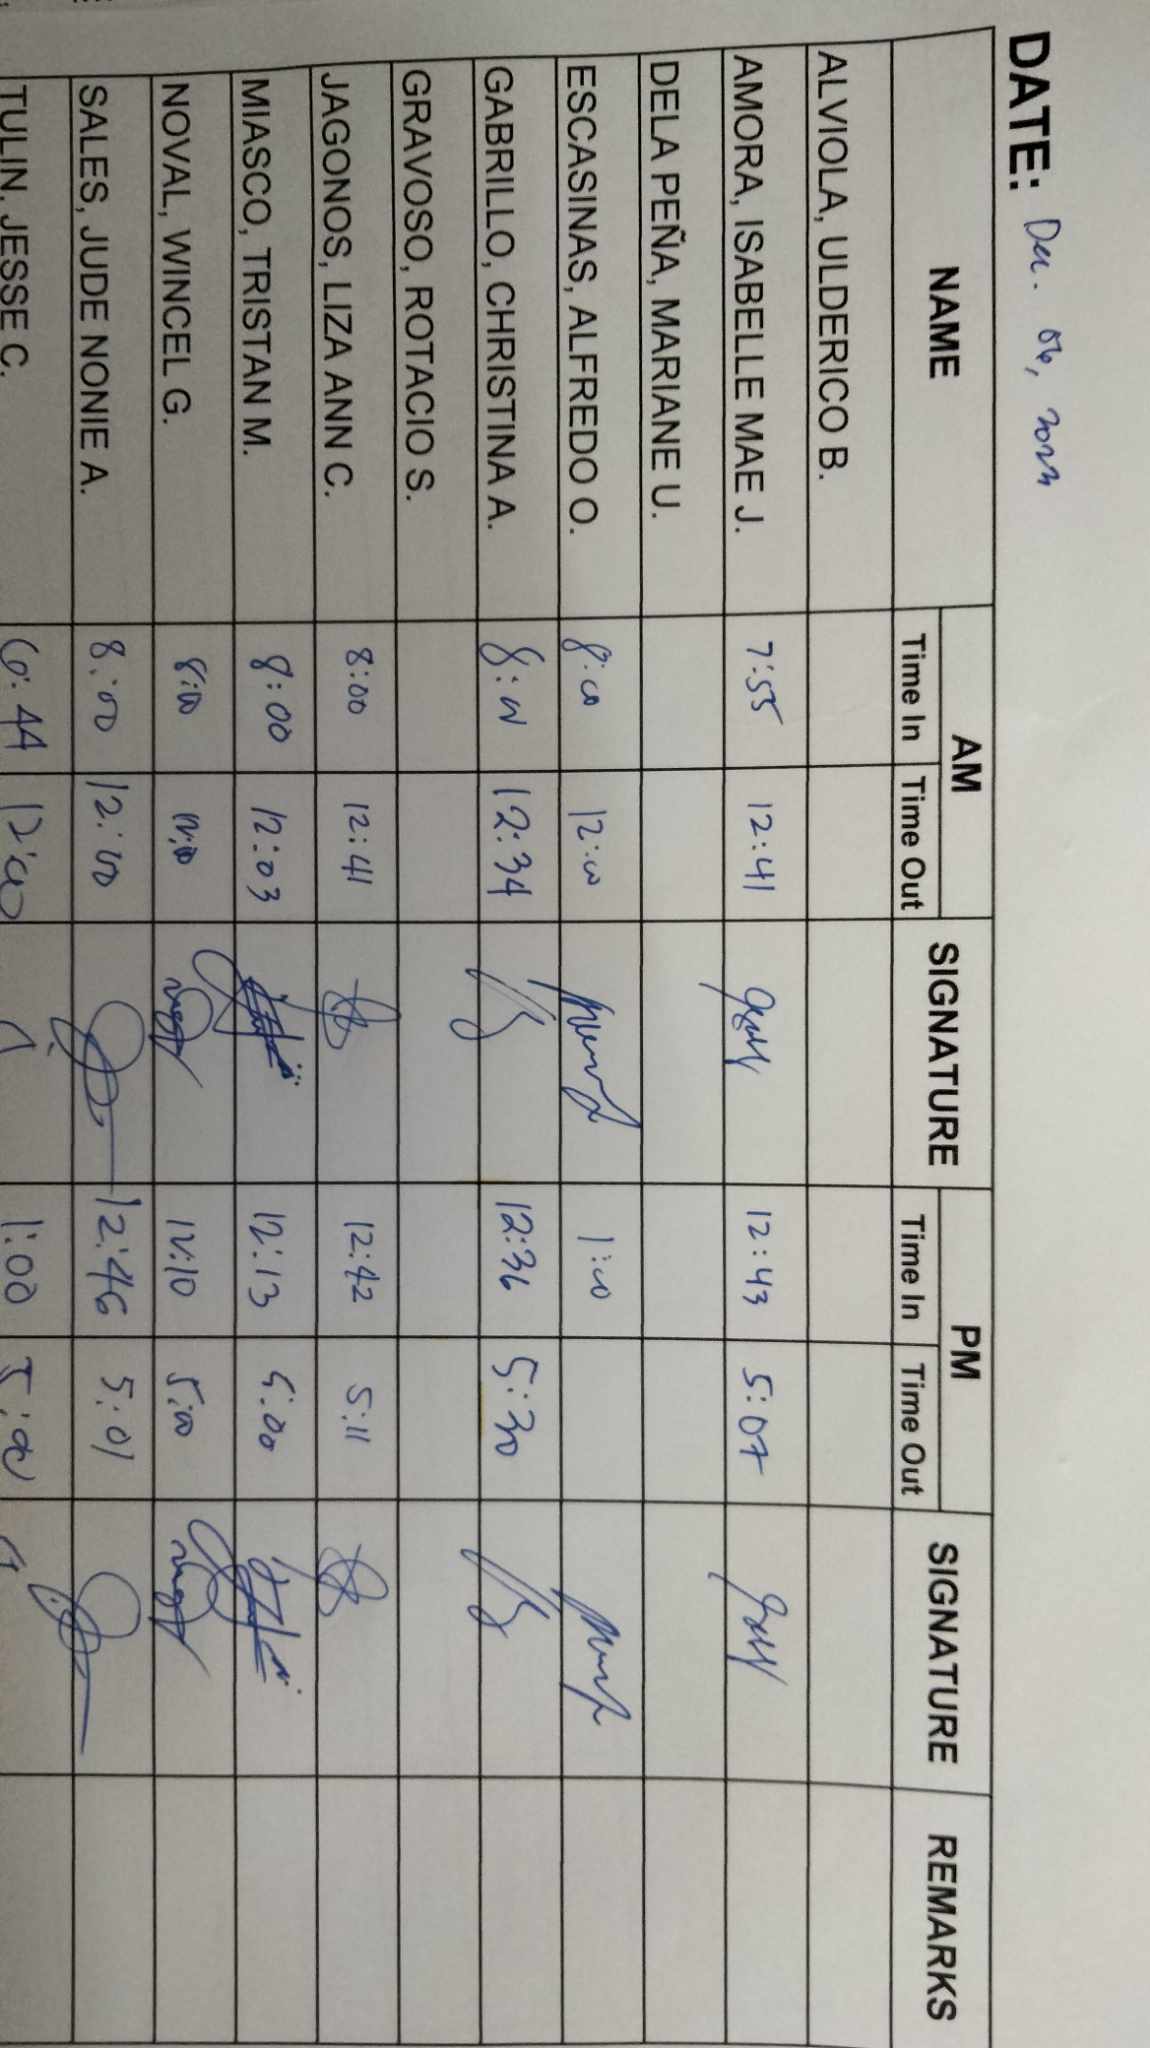 DATE: Dec. 06, 2023
NAME AM SIGNATURE PM SIGNATURE REMARKS
Time In Time Out Time In Time Out
ALVIOLA, ULDERICO B.
AMORA, ISABELLE MAE J. 7:55 12:41 12:43 5:07
DELA PEÑA, MARIANE U.
ESCASINAS, ALFREDO O. 8:00 12:00 1:00
GABRILLO, CHRISTINA A. 8:00 12:34 12:36 5:30
GRAVOSO, ROTACIO S.
JAGONOS, LIZA ANN C. 8:00 12:41 12:42 5:11
MIASCO, TRISTAN M. 8:00 12:03 12:13 5:00
NOVAL, WINCEL G. 8:00 12:00 12:10 5:00
SALES, JUDE NONIE A. 8:00 12:00 12:46 5:01
TULIN, JESSE C. 6:44 12:00 1:00 5:00